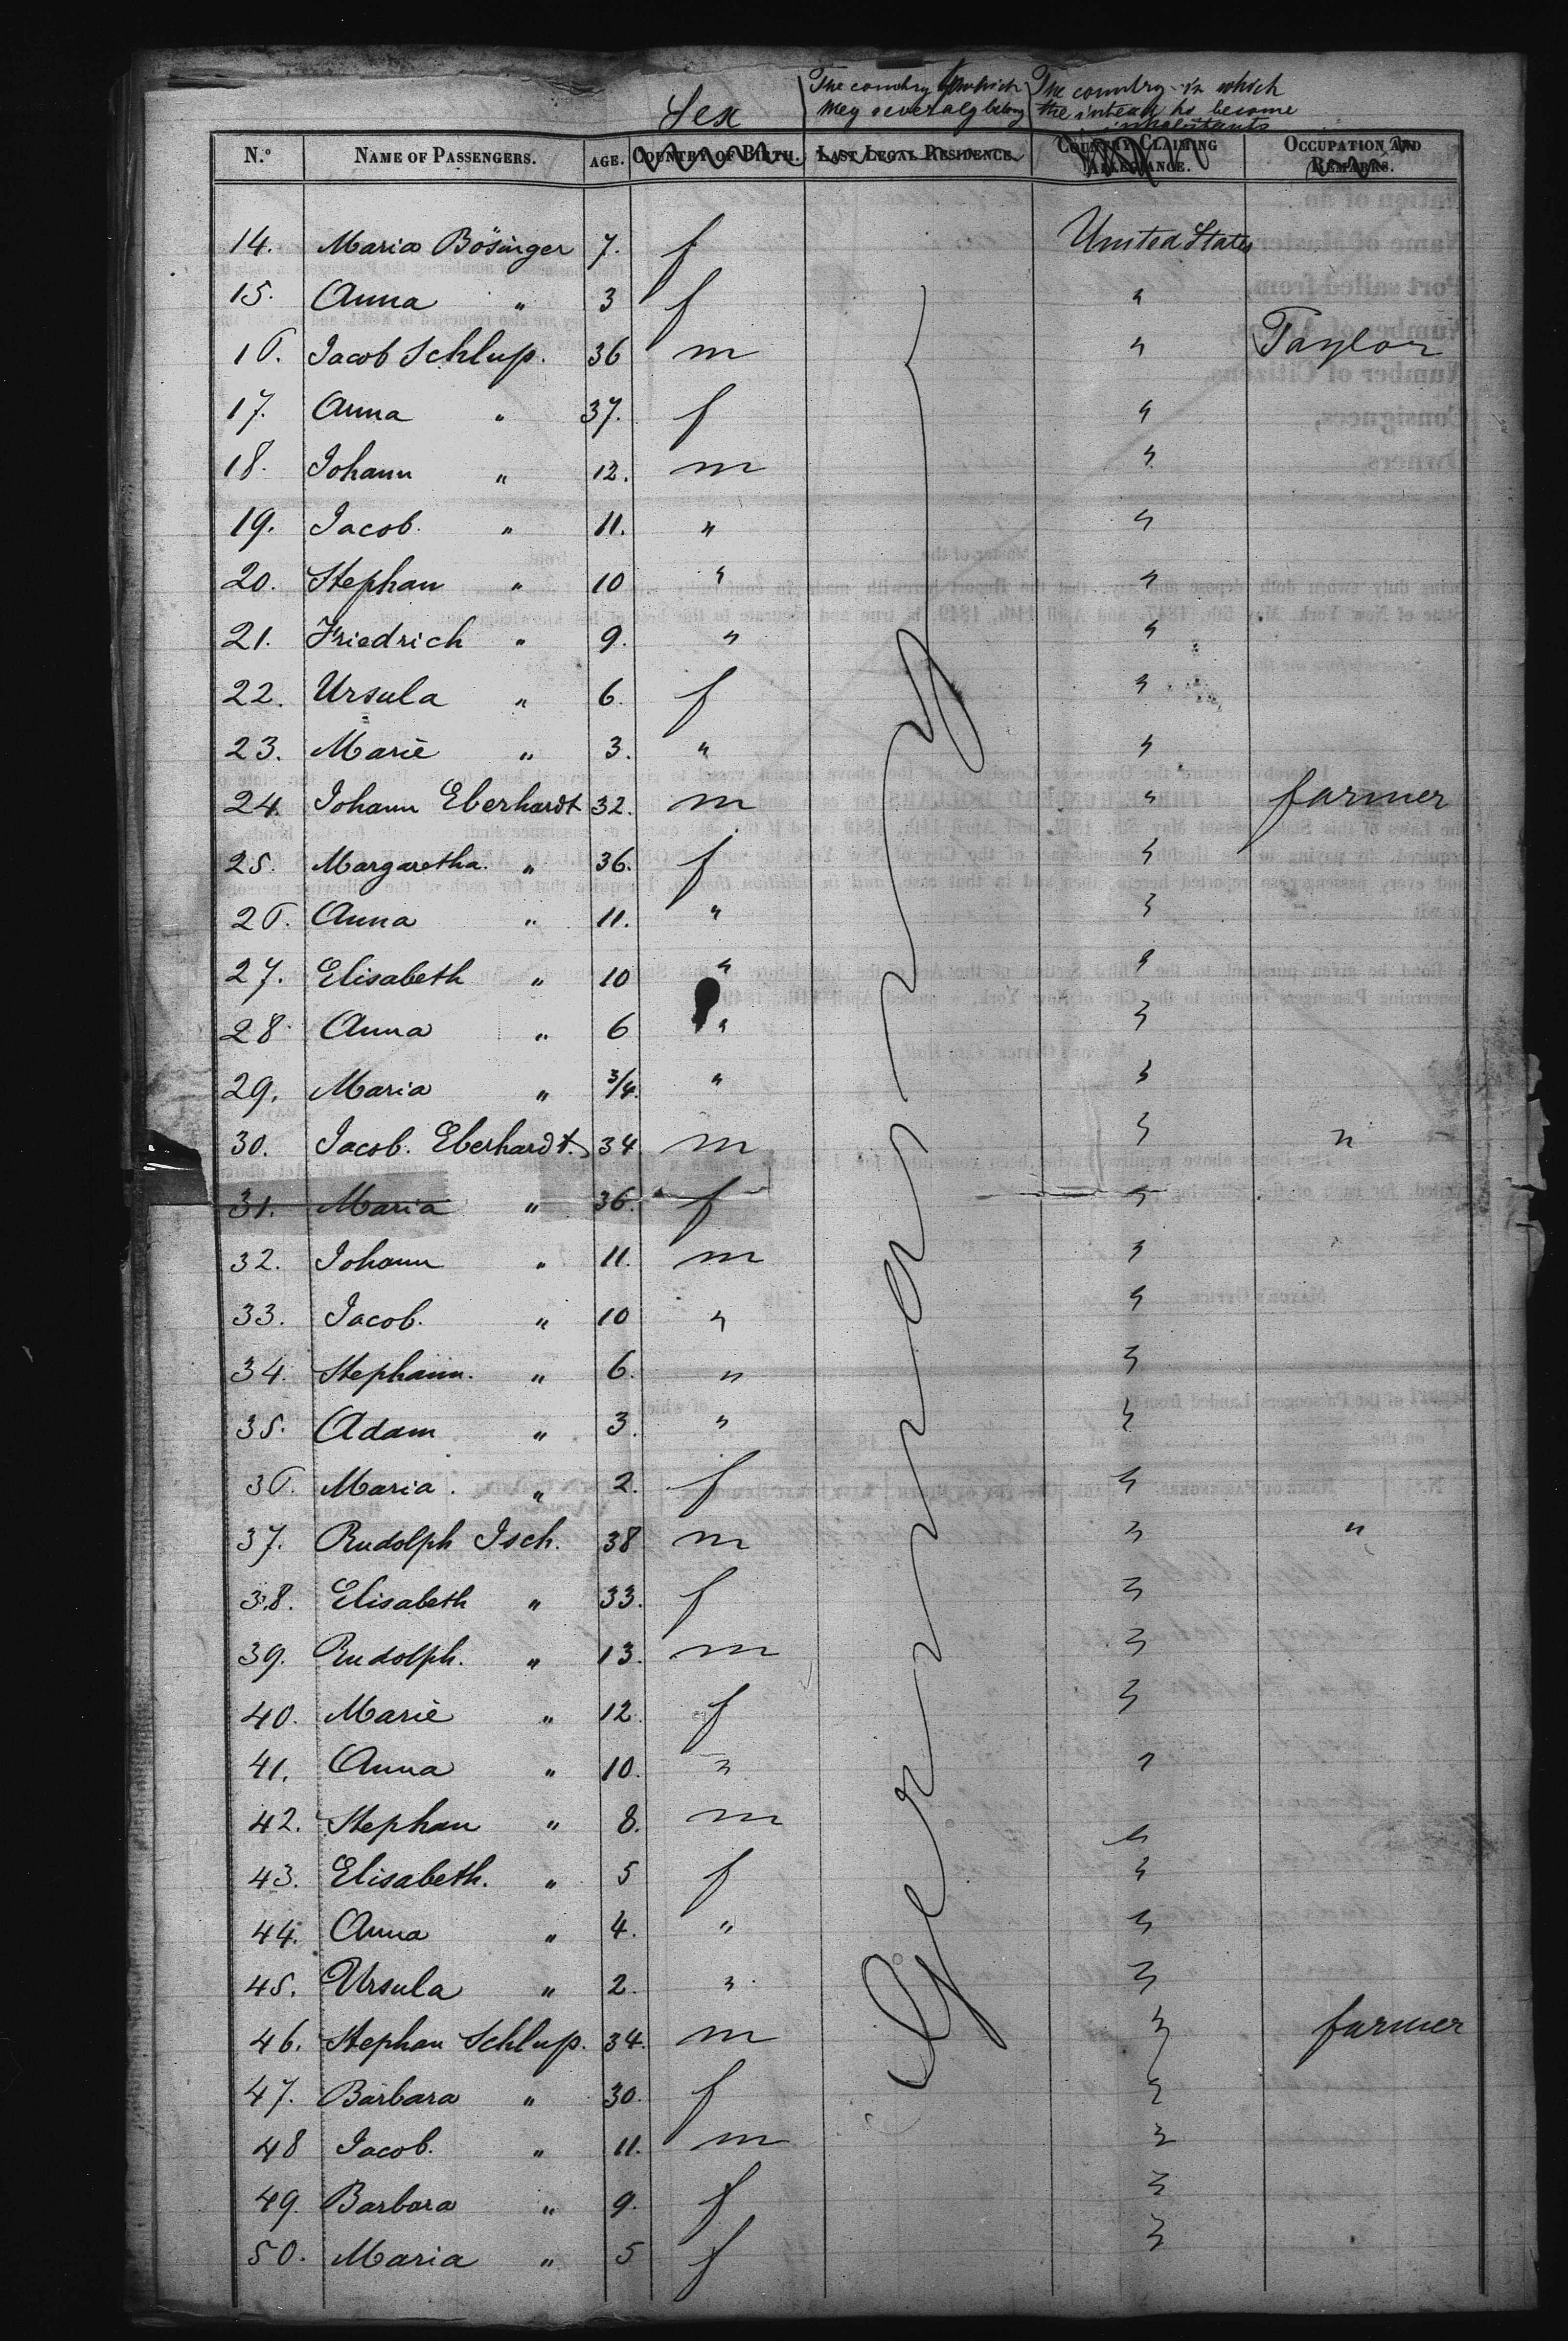 Sex
The country to which they severaly belong
The country in which the intend to become inhabitants
N.º NAME OF PASSENGERS. AGE. COUNTRY OF BIRTH. LAST LEGAL RESIDENCE. COUNTRY CLAIMING ALLEGIANCE. OCCUPATION AND REMARKS.
14. Maria Bösinger 7. f United States
15. Anna " 3 f "
16. Jacob Schlup. 36 m " Taylor
17. Anna " 37. f "
18. Johann " 12. m "
19. Jacob. " 11. " "
20. Stephan " 10 " "
21. Friedrich " 9. " "
22. Ursula " 6. f "
23. Marie " 3. " "
24. Johann Eberhardt 32. m " farmer
25. Margaretha. " 36. f "
26. Anna " 11. " "
27. Elisabeth " 10 " "
28. Anna " 6 " "
29. Maria " 3/4. " "
30. Jacob. Eberhardt. 34 m " "
31. Maria " 36. f "
32. Johann " 11. m "
33. Jacob. " 10 " "
34. Stephann. " 6. " "
35. Adam " 3. " "
36. Maria. " 2. f "
37. Rudolph Isch. 38 m " "
38. Elisabeth " 33. f "
39. Rudolph. " 13. m "
40. Marie " 12. f "
41. Anna " 10. " "
42. Stephan " 8. m "
43. Elisabeth. " 5 f "
44. Anna " 4. " "
45. Ursula " 2. " "
46. Stephan Schlup. 34. m " farmer
47. Barbara " 30. f "
48 Jacob. " 11. m "
49. Barbara " 9. f "
50. Maria " 5 f "
Germany